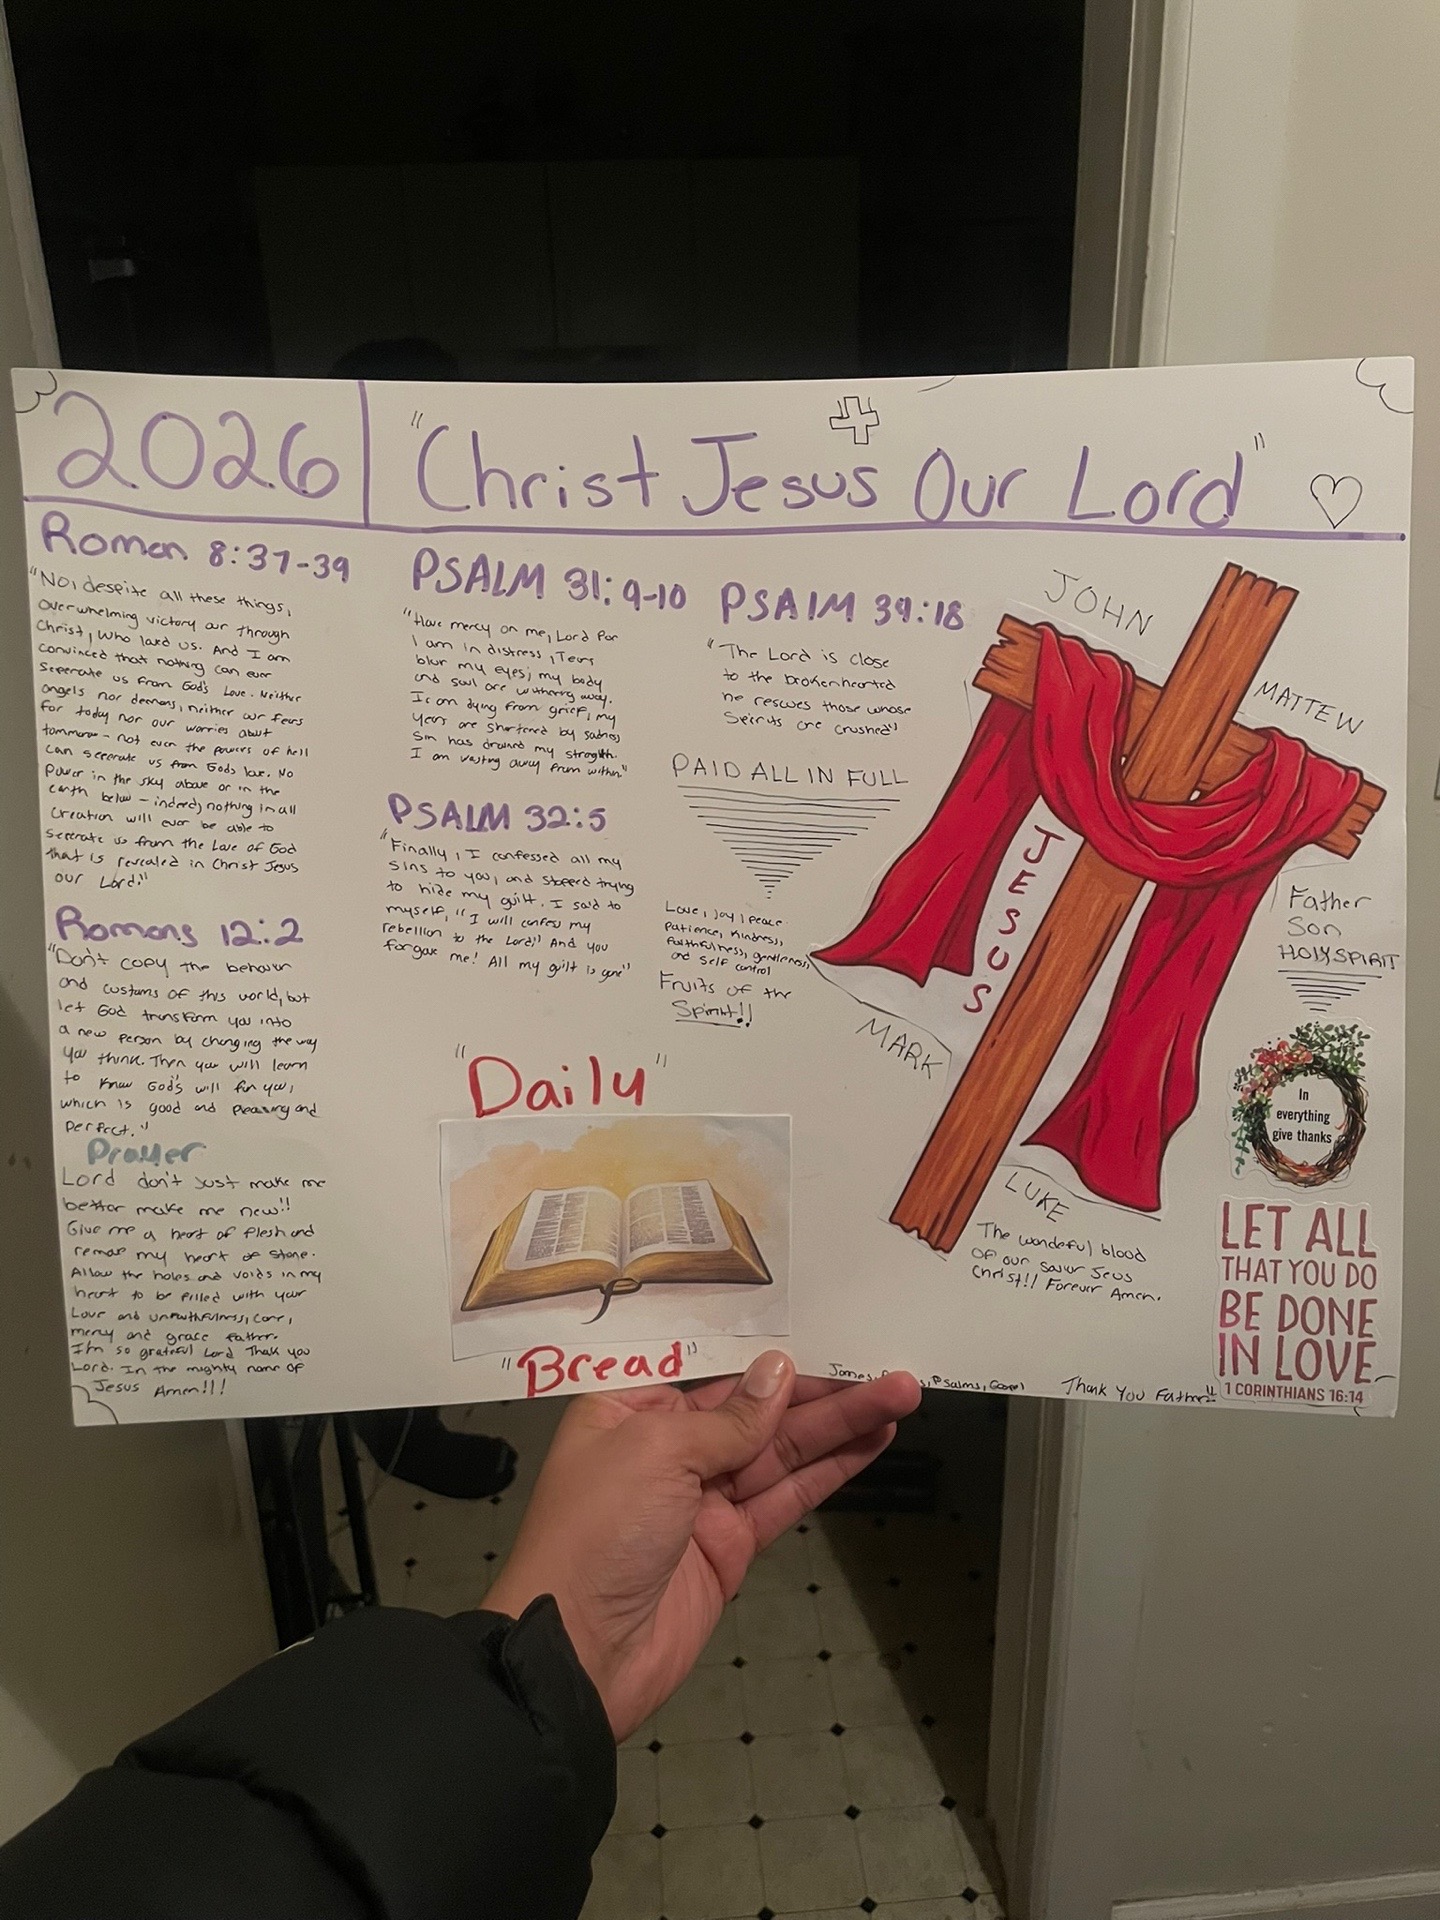 2026
"Christ Jesus Our Lord"
Roman 8:37-39
"No, despite all these things,
overwhelming victory our through
Christ, who loved us. And I am
convinced that nothing can ever
Seperate us from God's Love. Neither
angels nor demons, neither our fears
for today nor our worries about
tommorow - not even the powers of hell
can seperate us from Gods love. No
Power in the sky above or in the
earth below - indeed, nothing in all
Creation will ever be able to
seperate us from the Love of God
that is revealed in Christ Jesus
our Lord."
Romans 12:2
"Don't copy the behavior
and customs of this world, but
let God transform you into
a new person by changing the way
you think. Then you will learn
to know God's will for you,
which is good and pleasing and
perfect."
Prayer
Lord don't just make me
better make me new!!
Give me a heart of flesh and
remove my heart of stone.
Allow the holes and voids in my
heart to be filled with your
Love and
mercy and grace father.
I'm so grateful Lord Thank you
Lord. In the mighty name of
Jesus Amen!!!
PSALM 31:9-10
"Have mercy on me, Lord for
I am in distress, Tears
blur my eyes; my body
and soul are withering away.
I am dying from grief, my
years are shortened by sadness
Sin has drained my strength.
I am wasting away from within."
PSALM 32:5
"Finally, I confessed all my
sins to you, and stopped trying
to hide my guilt. I said to
myself, "I will confess my
rebellion to the Lord." And you
forgave me! All my guilt is gone"
PSAlM 34:18
"The Lord is close
to the brokenhearted
he rescues those whose
Spirits are crushed"
PAID ALL IN FULL
Love, Joy, peace
patience, kindness,
faithfulness, gentleness,
and self control
Fruits of the
Spirit!!
"Daily"
"Bread"
JOHN
MATTEW
JESUS
MARK
LUKE
The wonderful blood
of our savior Jesus
Christ!! Forever Amen.
Father
Son
HOLYSPIRIT
In
everything
give thanks
LET ALL
THAT YOU DO
BE DONE
IN LOVE
1 CORINTHIANS 16:14
James, Psalms, Gospel
Thank You Father!!